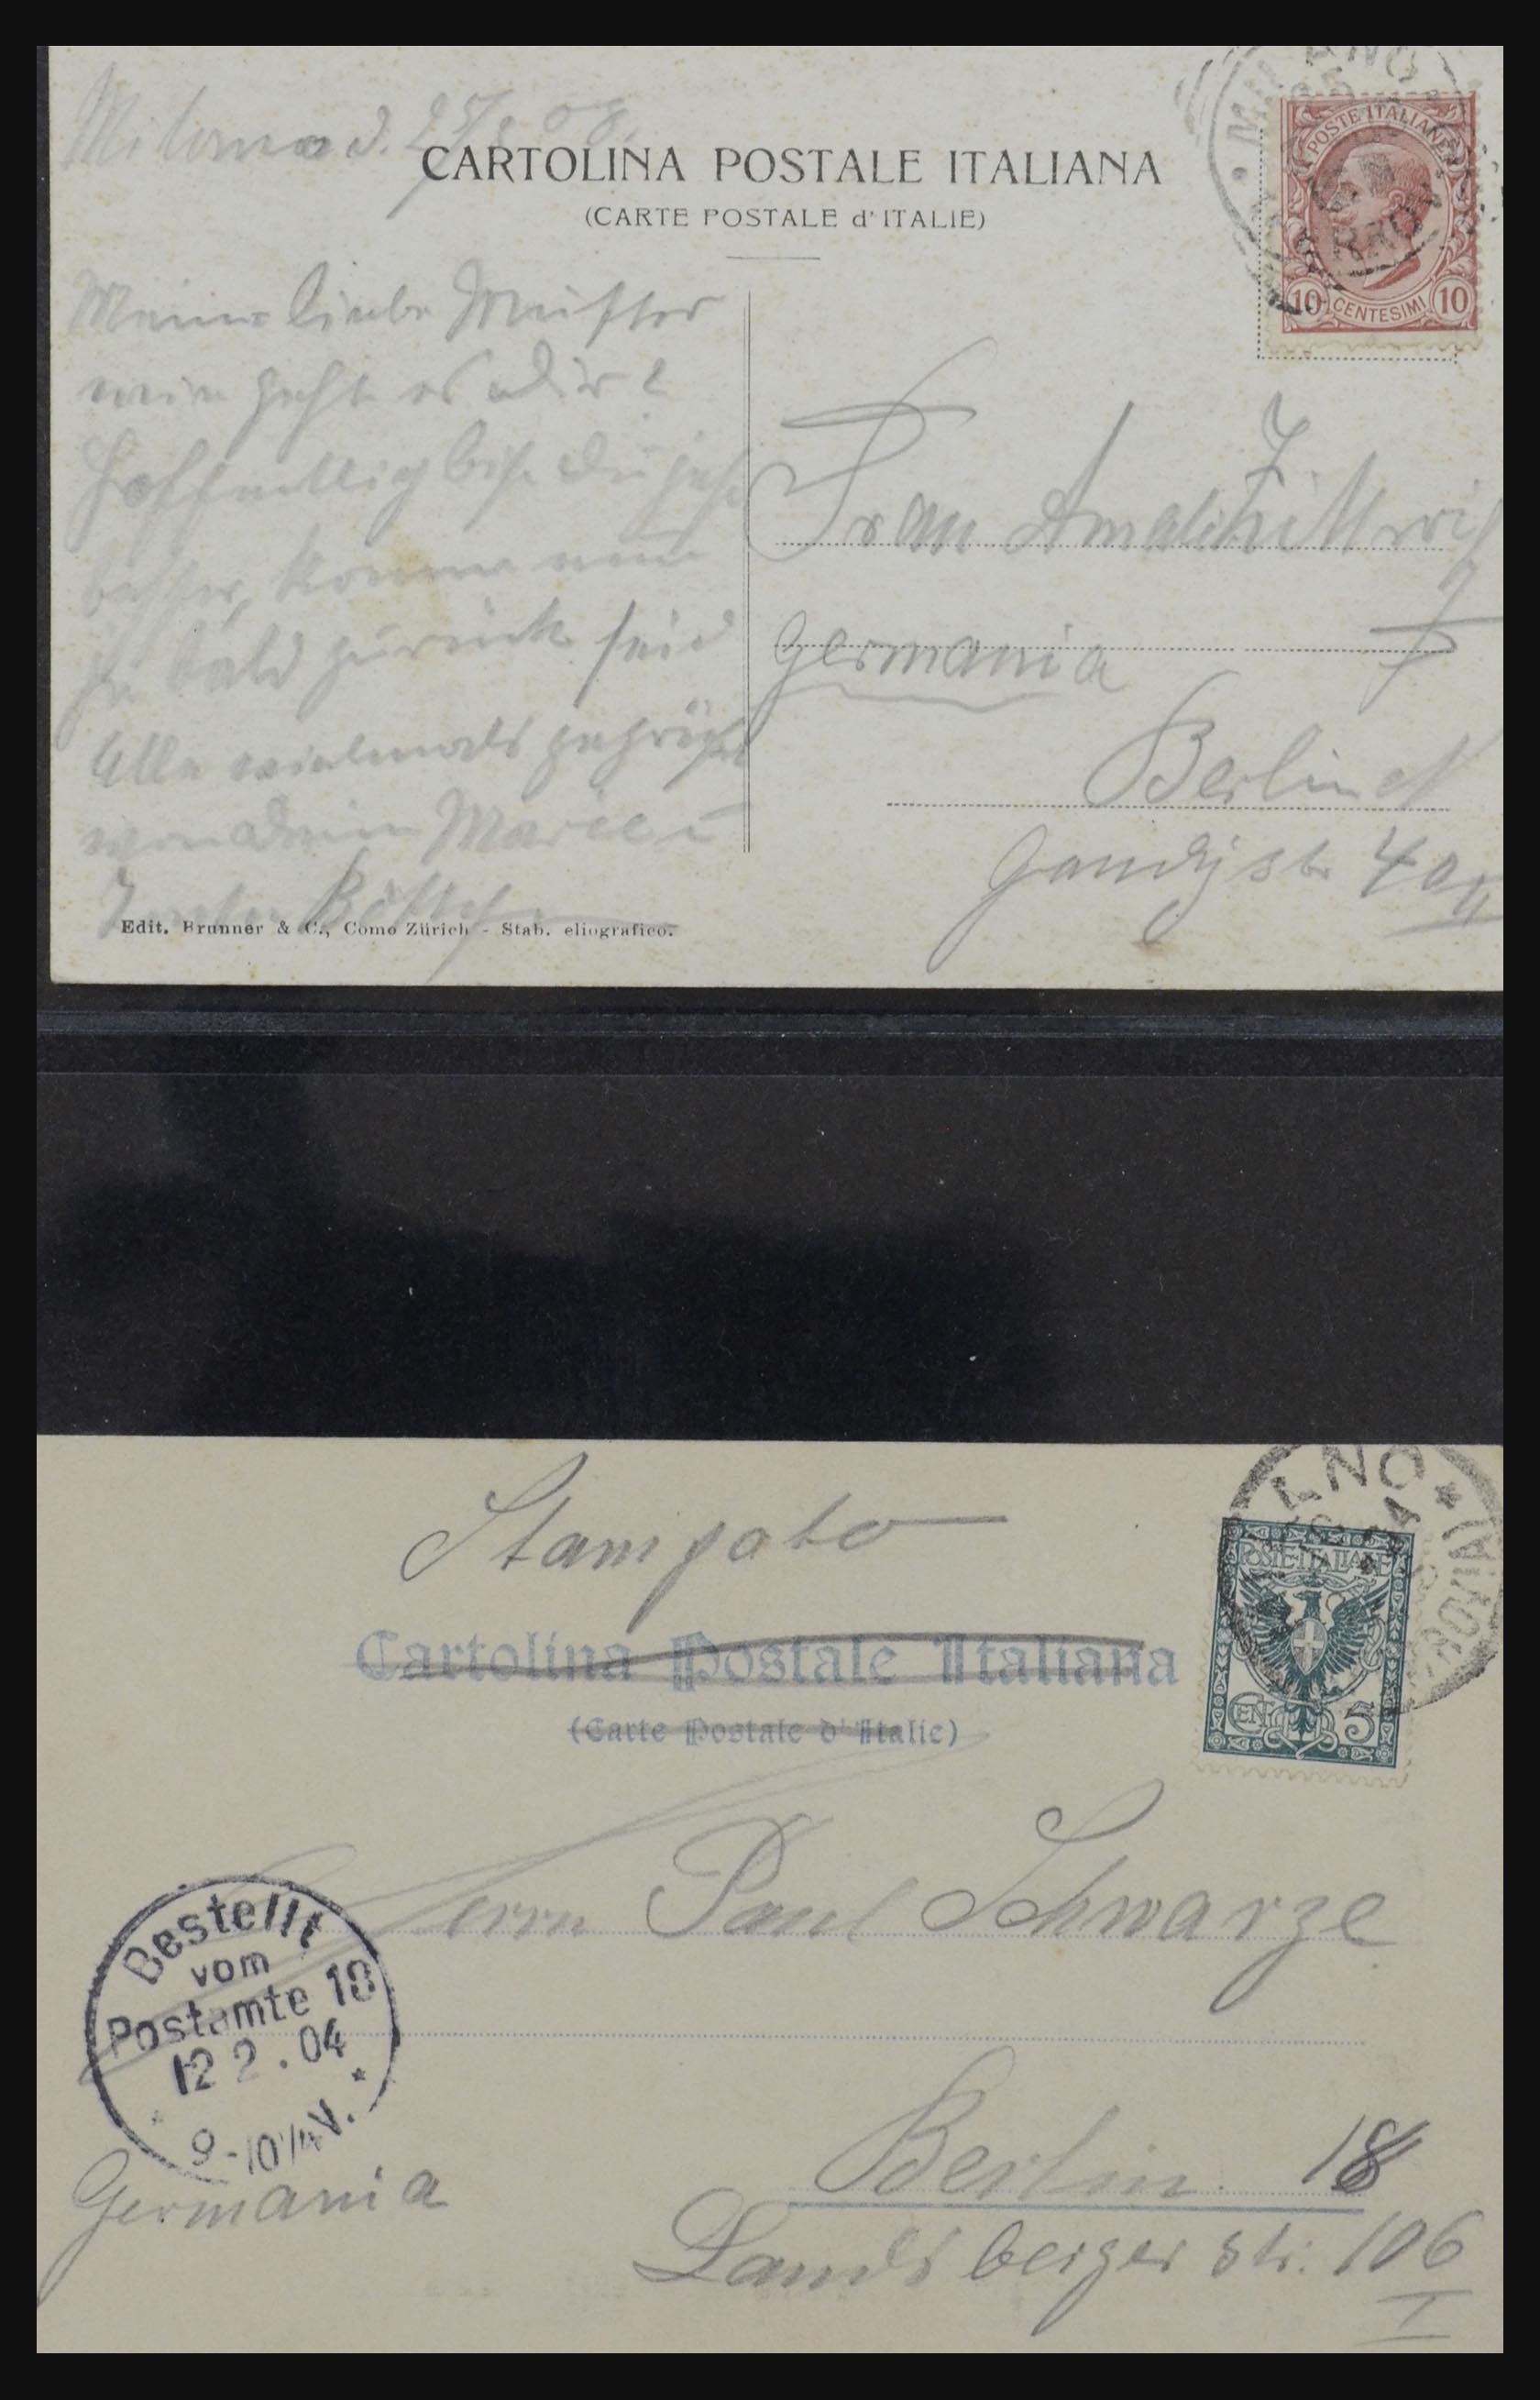 Milano d. 25/ 08.
CARTOLINA POSTALE ITALIANA
(CARTE POSTALE d'ITALIE)
MILANO
POSTE ITALIANE
10 CENTESIMI 10
Meine liebe Mutter
wie geht es Dir?
Hoffentlig bist Du jetzt
besser, komme nun
ja bald zurück seid
Alle vielmals gegrüßt
von Deine Marie u
Frau
Germania
Berlin N
Gaudystr 40 II
Edit. Brunner & C., Como Zürich - Stab. eliografico.
Stampato
Cartolina Postale Italiana
(Carte Postale d'Italie)
POSTE ITALIANE
CEN 5
Herrn Paul Schwarze
Bestellt
vom
Postamte 18
12 2.04
9-10¼V.
Germania
Berlin. 18
Landsberger str. 106
I